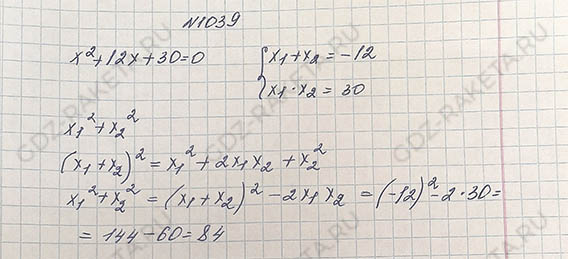 №1039
x²+12x+30=0
{x₁+x₂=-12
x₁·x₂=30
x₁²+x₂²
(x₁+x₂)²=x₁²+2x₁x₂+x₂²
x₁²+x₂²=(x₁+x₂)²-2x₁x₂=(-12)²-2·30=
=144-60=84
GDZ-RAKETA.RU
GDZ-RAKETA.RU
GDZ-RAKETA.RU
GDZ-RAKETA.RU